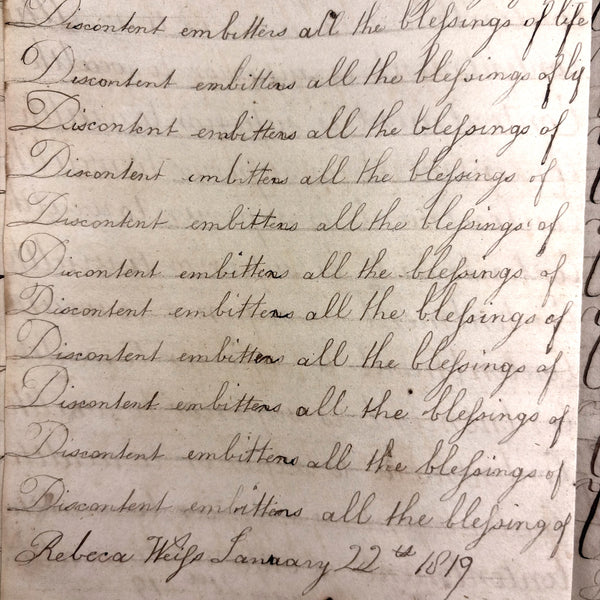 Discontent embitters all the bleſsings of life
Discontent embitters all the bleſsings of lif
Discontent embitters all the bleſsings of
Discontent imbitters all the bleſsings of
Discontent embitters all the bleſsings of
Discontent embitters all the bleſsings of
Discontent embitters all the bleſsings of
Discontent embitters all the bleſsings of
Discontent embitters all the bleſsings of
Discontent embitters all the bleſsings of
Discontent embitters all the bleſsing of
Rebeca Weiſs January 22th 1819